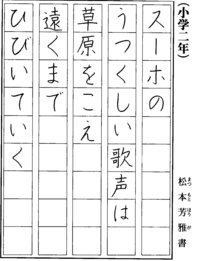 （小学二年）
松本芳雅書
まつもとほうが
スーホの
うつくしい歌声は
草原をこえ
遠くまで
ひびいていく